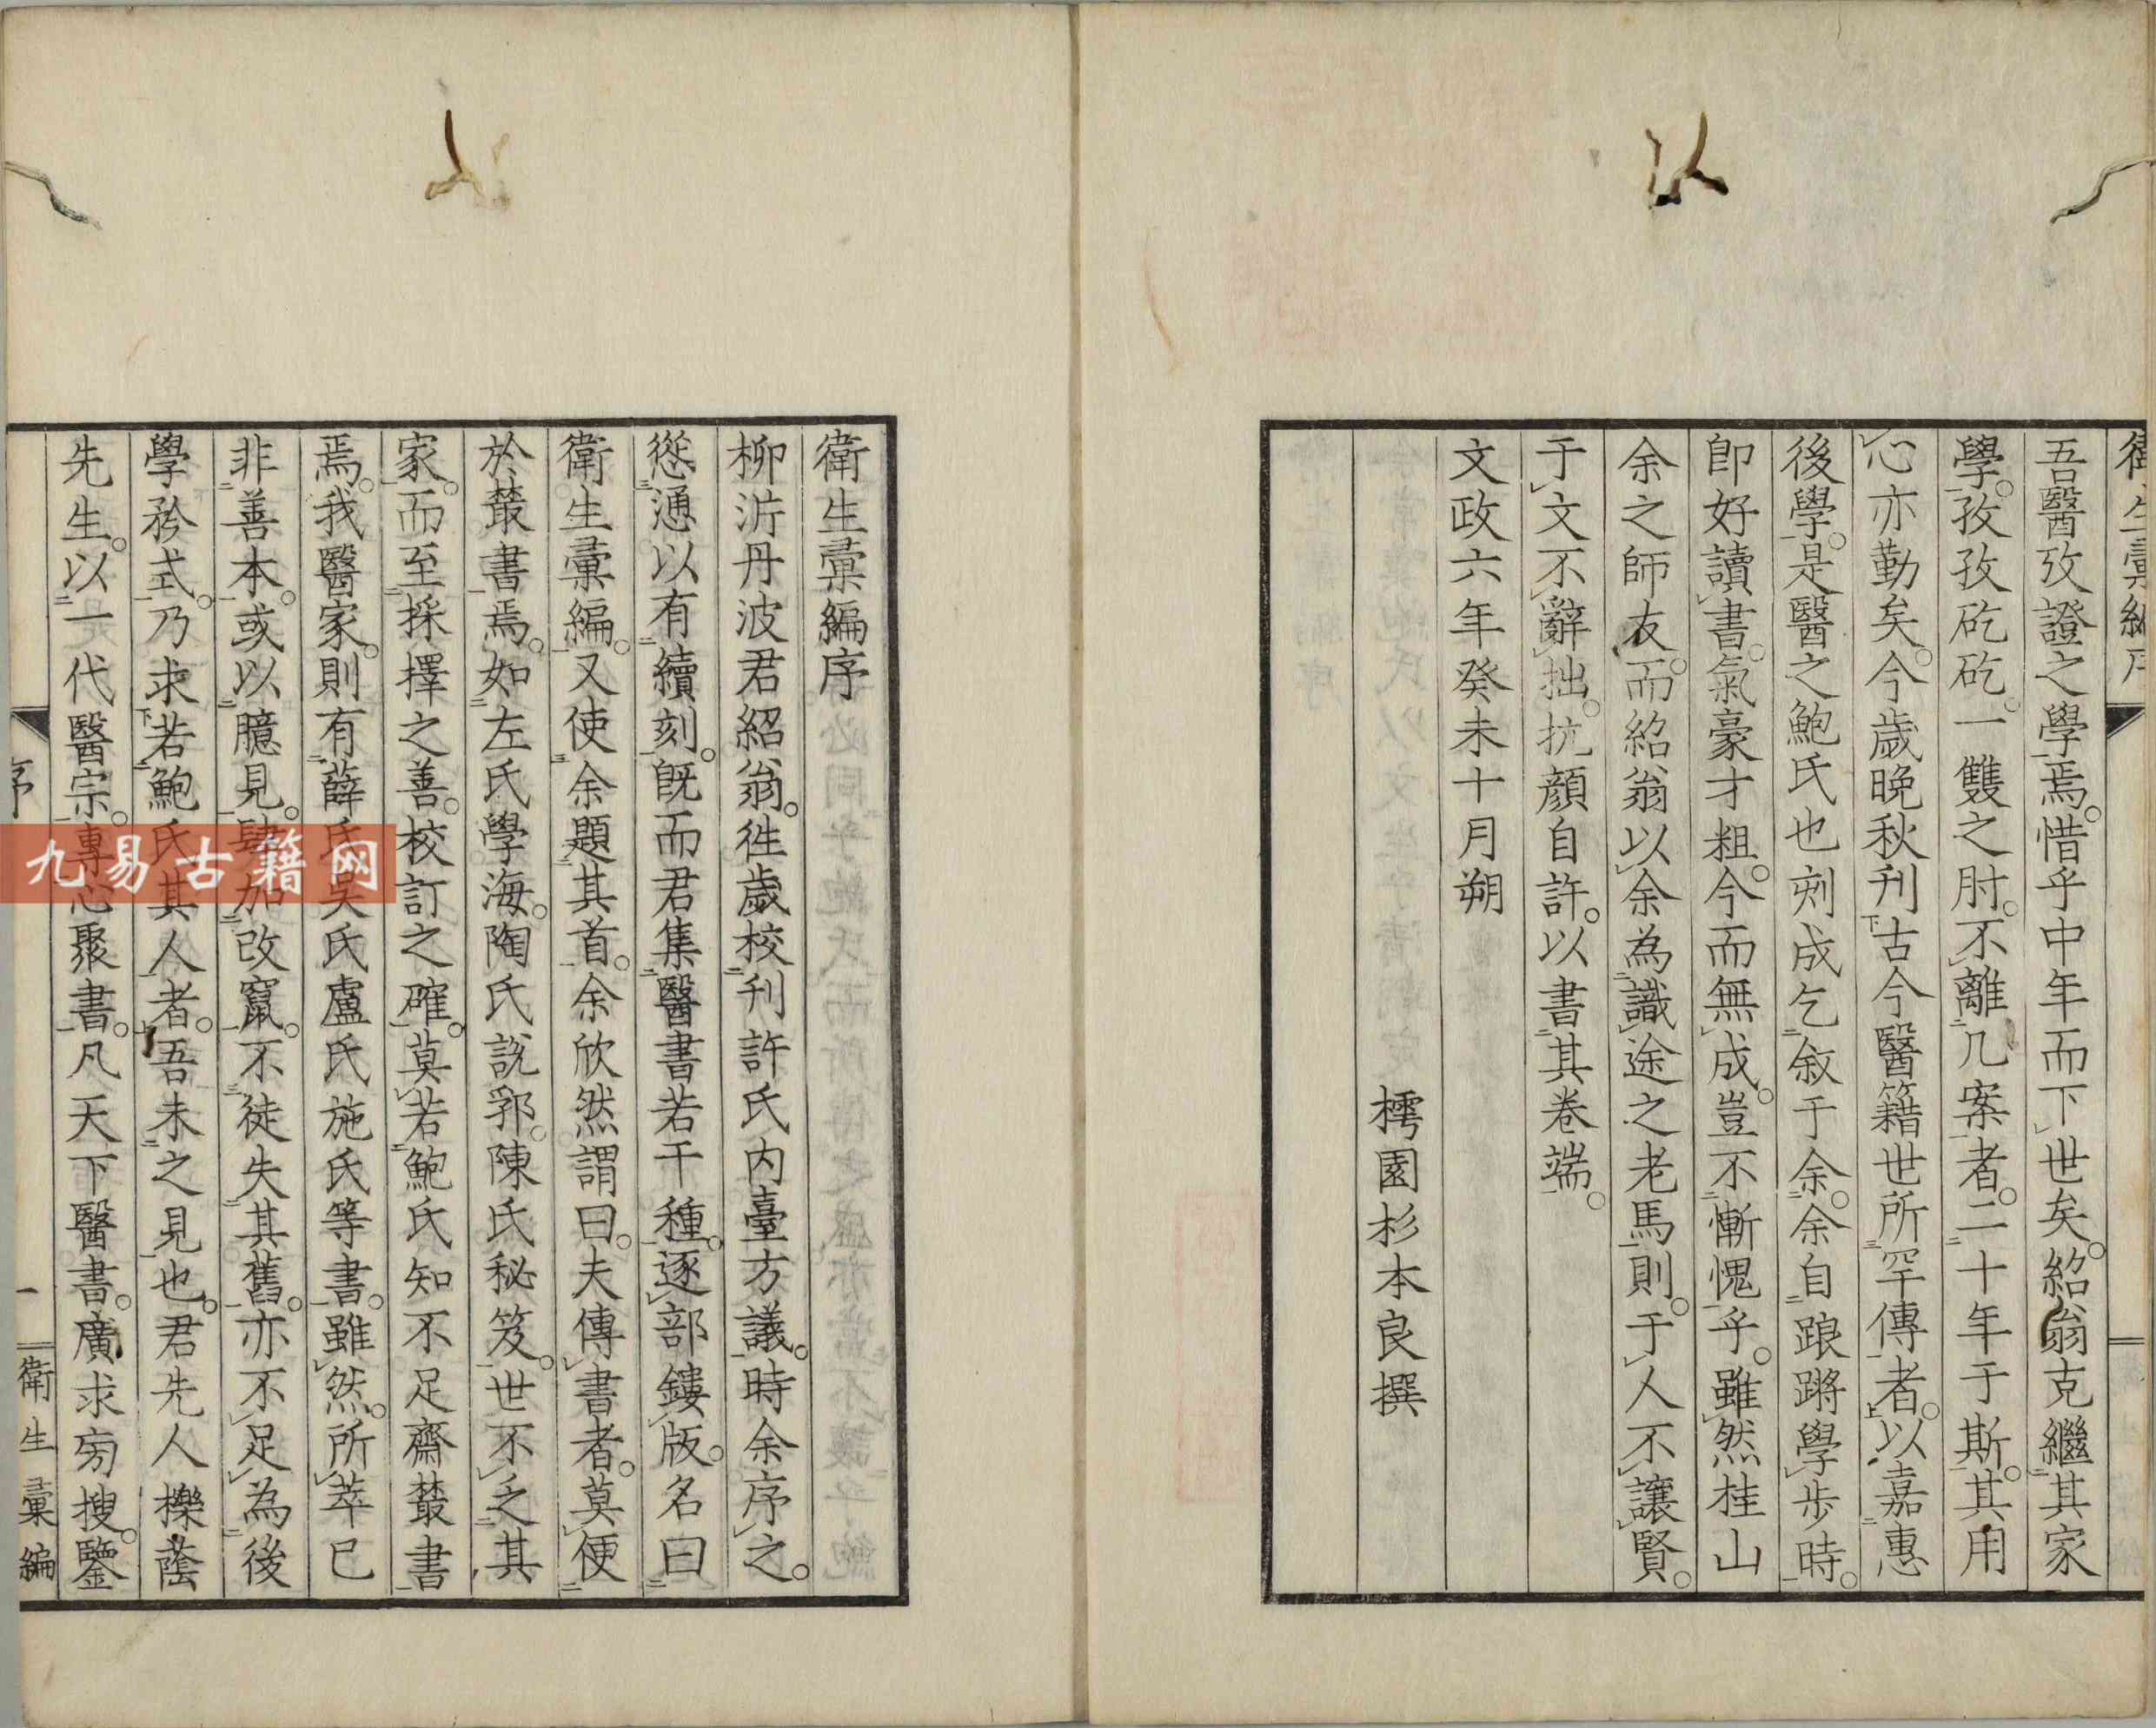 衛生彙編序
吾醫攷證之學焉。惜乎中年而下世矣。紹翁克繼其家
學。孜孜矻矻。一雙之肘。不離几案者。二十年于斯。其用
心亦勤矣。今歲晚秋刊古今醫籍世所罕傳者。以嘉惠
後學。是醫之鮑氏也刻成乞敘于余。余自踉蹡學步時。
卽好讀書。氣豪才粗。今而無成。豈不慚愧乎。雖然桂山
余之師友。而紹翁以余為識途之老馬。則于人不讓賢。
于文不辭拙。抗顏自許。以書其卷端。
文政六年癸未十月朔
樗園杉本良撰
衛生彙編序
柳沜丹波君紹翁。徃歲校刊許氏内臺方議。時余序之。
慫慂以有續刻。旣而君集醫書若干種。逐部鏤版。名曰
衛生彙編。又使余題其首。余欣然謂曰。夫傳書者。莫便
於叢書焉。如左氏學海。陶氏說郛。陳氏秘笈。世不乏其
家。而至採擇之善。校訂之確。莫若鮑氏知不足齋叢書
焉。我醫家。則有薛氏吳氏盧氏施氏等書。雖然。所萃已
非善本。或以臆見。肆加改竄。不徒失其舊。亦不足為後
學矜式。乃求若鮑氏其人者。吾未之見也。君先人櫟蔭
先生。以一代醫宗。專心聚書。凡天下醫書。廣求旁搜。鑒
序
一
衛生彙編
九易古籍网